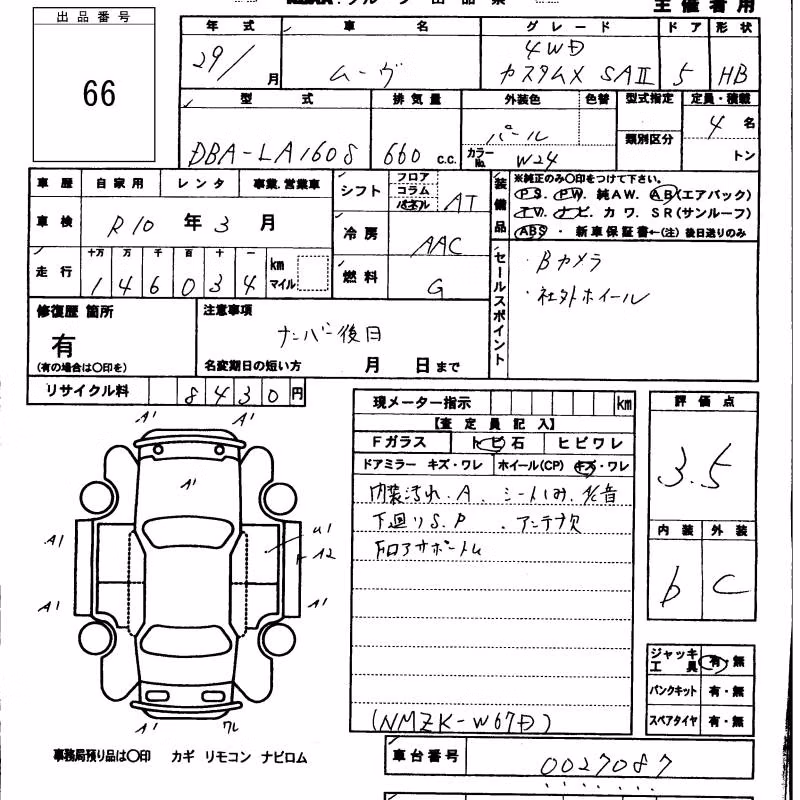 出品番号
66
年式 車名 グレード ドア 形状
29/ 月 ムーヴ 4WD カスタムX SAⅡ 5 HB
型式 排気量 外装色 色替 型式指定 定員・積載
DBA-LA160S 660 c.c. パール 4 名
カラーNo. W24 類別区分 トン
車歴 自家用 レンタ 事業.営業車
車検 R10 年 3 月
走行 十万 万 千 百 十 一
1 4 6 0 3 4 km マイル
シフト フロア コラム パネル AT
冷房 AAC
燃料 G
装備品 ※純正のみ〇印をつけて下さい。
PS. PW. 純AW. AB(エアバック)
TV. ナビ. カワ. SR(サンルーフ)
ABS ・ 新車保証書←(注) 後日送りのみ
セールスポイント
・Bカメラ
・社外ホイール
修復歴 箇所
有
(有の場合は〇印を)
注意事項
ナンバー後日
名変期日の短い方 月 日まで
リサイクル料 8430円
現メーター指示 km
【査定員記入】
Fガラス トビ石 ヒビワレ
ドアミラー キズ・ワレ ホイール(CP) キズ・ワレ
内装汚れ.A、シートしみ.
下回りS.P 、アンテナ欠
(NMZK-W67D)
評価点
3.5
内装 外装
b C
A1 A1
A1
A1 U1
A2
A1 A1
A1 ワレ
ジャッキ工具 有・無
パンクキット 有・無
スペアタイヤ 有・無
事務局預り品は〇印 カギ リモコン ナビロム
車台番号 0027087